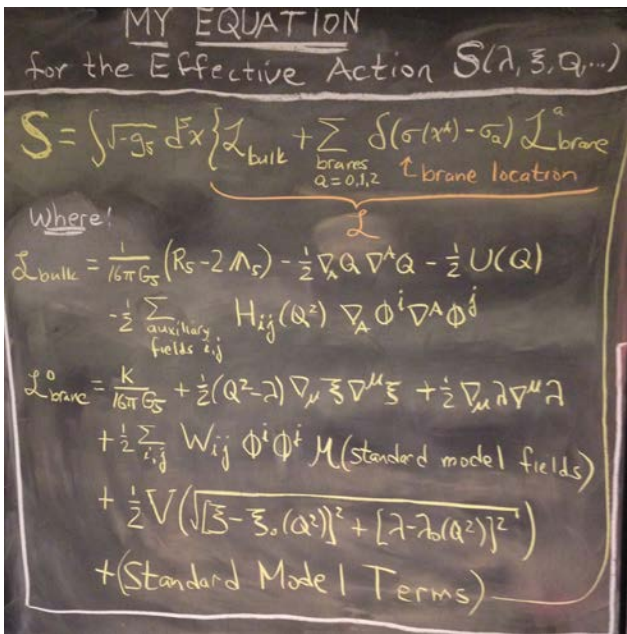 MY EQUATION
for the Effective Action S(λ, ξ, Q, ...)
S = ∫√-g₅ d⁵x {ℒ_bulk + ∑_{branes a=0,1,2} δ(σ(x^A) - σ_a) ℒ^a_brane
↑ brane location
ℒ
Where:
ℒ_bulk = 1/(16πG₅) (R₅ - 2Λ₅) - ½ ∇_A Q ∇^A Q - ½ U(Q)
- ½ ∑_{auxiliary fields i,j} H_ij(Q²) ∇_A Φ^i ∇^A Φ^j
ℒ⁰_brane = K/(16πG₅) + ½(Q² - λ) ∇_μ ξ ∇^μ ξ + ½ ∇_μ λ ∇^μ λ
+ ½ ∑_{i,j} W_ij Φ^i Φ^j M(standard model fields)
+ ½ V(√([ξ - ξ₀(Q²)]² + [λ - λ₀(Q²)]²))
+ (Standard Model Terms)